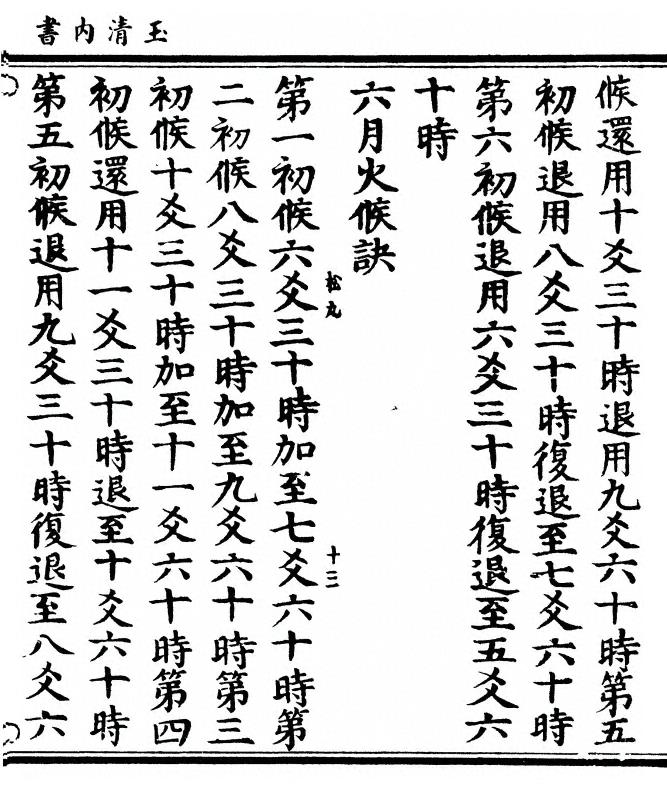 玉清內書
候還用十爻三十時退用九爻六十時第五
初候退用八爻三十時復退至七爻六十時
第六初候退用六爻三十時復退至五爻六
十時
六月火候訣
松九
十三
第一初候六爻三十時加至七爻六十時第
二初候八爻三十時加至九爻六十時第三
初候十爻三十時加至十一爻六十時第四
初候還用十一爻三十時退至十爻六十時
第五初候退用九爻三十時復退至八爻六